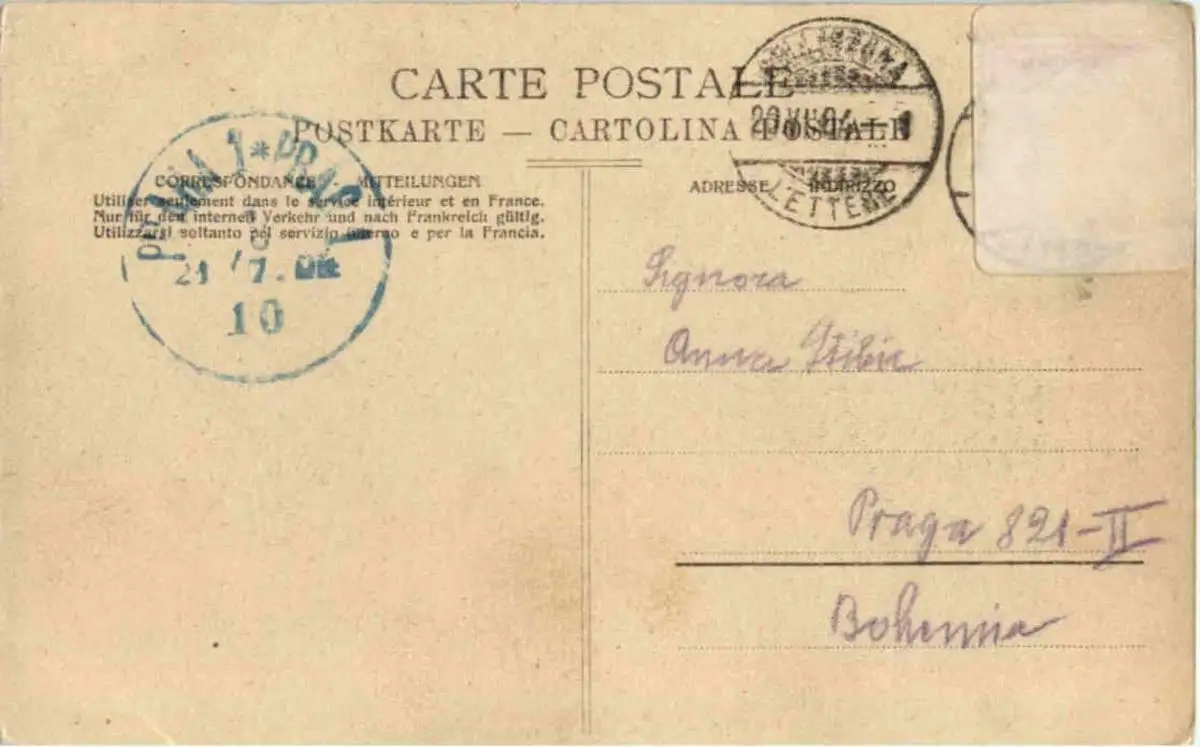 CARTE POSTALE
POSTKARTE — CARTOLINA POSTALE
CORRESPONDANCE - MITTEILUNGEN
Utiliser seulement dans le service intérieur et en France.
Nur für den internen Verkehr und nach Frankreich gültig.
Utilizzarsi soltanto pel servizio interno e per la Francia.
ADRESSE INDIRIZZO
BELLINZONA
20.VII.04. 1
LETTERE
PRAHA 1 * PRAG 1
21 7.04
10
Signora
Anna
Praga 821-II
Bohemia